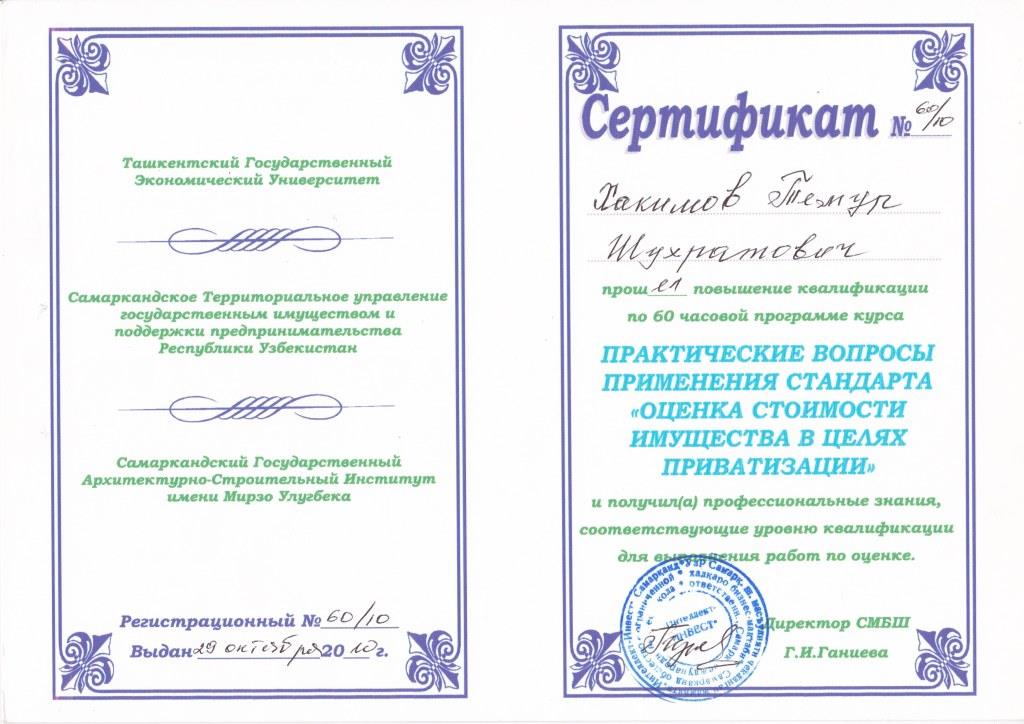 Ташкентский Государственный
Экономический Университет
Самаркандское Территориальное управление
государственным имуществом и
поддержки предпринимательства
Республики Узбекистан
Самаркандский Государственный
Архитектурно-Строительный Институт
имени Мирзо Улугбека
Регистрационный № 60/10
Выдан 29 октября 2010 г.
Сертификат № 60/10
Хакимов Темур
Шухратович
прошел повышение квалификации
по 60 часовой программе курса
ПРАКТИЧЕСКИЕ ВОПРОСЫ
ПРИМЕНЕНИЯ СТАНДАРТА
«ОЦЕНКА СТОИМОСТИ
ИМУЩЕСТВА В ЦЕЛЯХ
ПРИВАТИЗАЦИИ»
и получил(а) профессиональные знания,
соответствующие уровню квалификации
для выполнения работ по оценке.
Интеллект-
Инвест
Директор СМБШ
Г.И.Ганиева